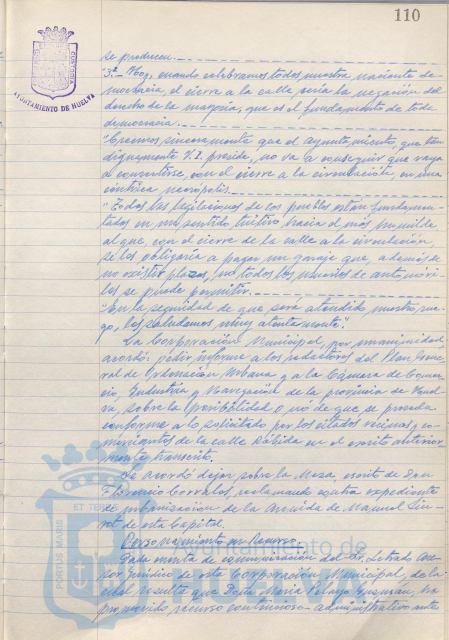 110
AYUNTAMIENTO DE HUELVA
se producen.
"3ª.- Hoy, cuando celebramos todos nuestra naciente de-
mocracia, el cierre a la calle sería la negación del
derecho de la mayoría, que es el fundamento de toda
democracia.
"Creemos sinceramente que el Ayuntamiento, que tan
dignamente V.I. preside, no va a conseguir que vaya
a convertirse, con el cierre a la circulación, en una
céntrica necrópolis.
"Todas las legislaciones de los pueblos están fundamen-
tadas en un sentido tuitivo hacia el más humilde
al que, con el cierre de la calle a la circulación,
se les obligaría a pagar un garaje que, además de
no existir plazas, no todos los usuarios de automóvi-
les se puede permitir.
"En la seguridad de que será atendido nuestro rue-
go, les saludamos muy atentamente".
La Corporación Municipal, por unanimidad,
acordó: pedir informe a los redactores del Plan Gene-
ral de Ordenación Urbana y a la Cámara de Comer-
cio, Industria y Navegación de la provincia de Huel-
va, sobre la posibilidad o no de que se proceda
conforme a lo solicitado por los citados vecinos y co-
merciantes de la calle Rábida en el escrito anterior-
mente transcrito.
Se acordó dejar sobre la Mesa, escrito de Don
Florencio Corrales, reclamando contra expediente
de urbanización de la Avenida de Manuel Siu-
rot de esta Capital.
Personamiento en Recurso.
Dada cuenta de comunicación del Sr. Letrado Ase-
sor Jurídico de esta Corporación Municipal, de la
cual resulta que Doña María Pelayo Guzmán, ha
promovido recurso contencioso-administrativo ante
PORTUS MARIS
ET TERRE
Ayuntamiento de